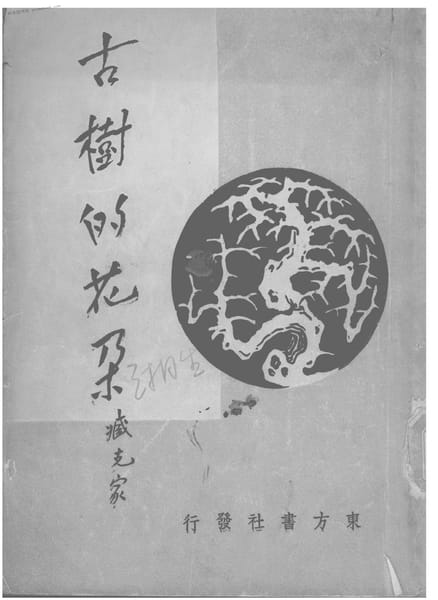 古樹的花朵
臧克家
東方書社發行